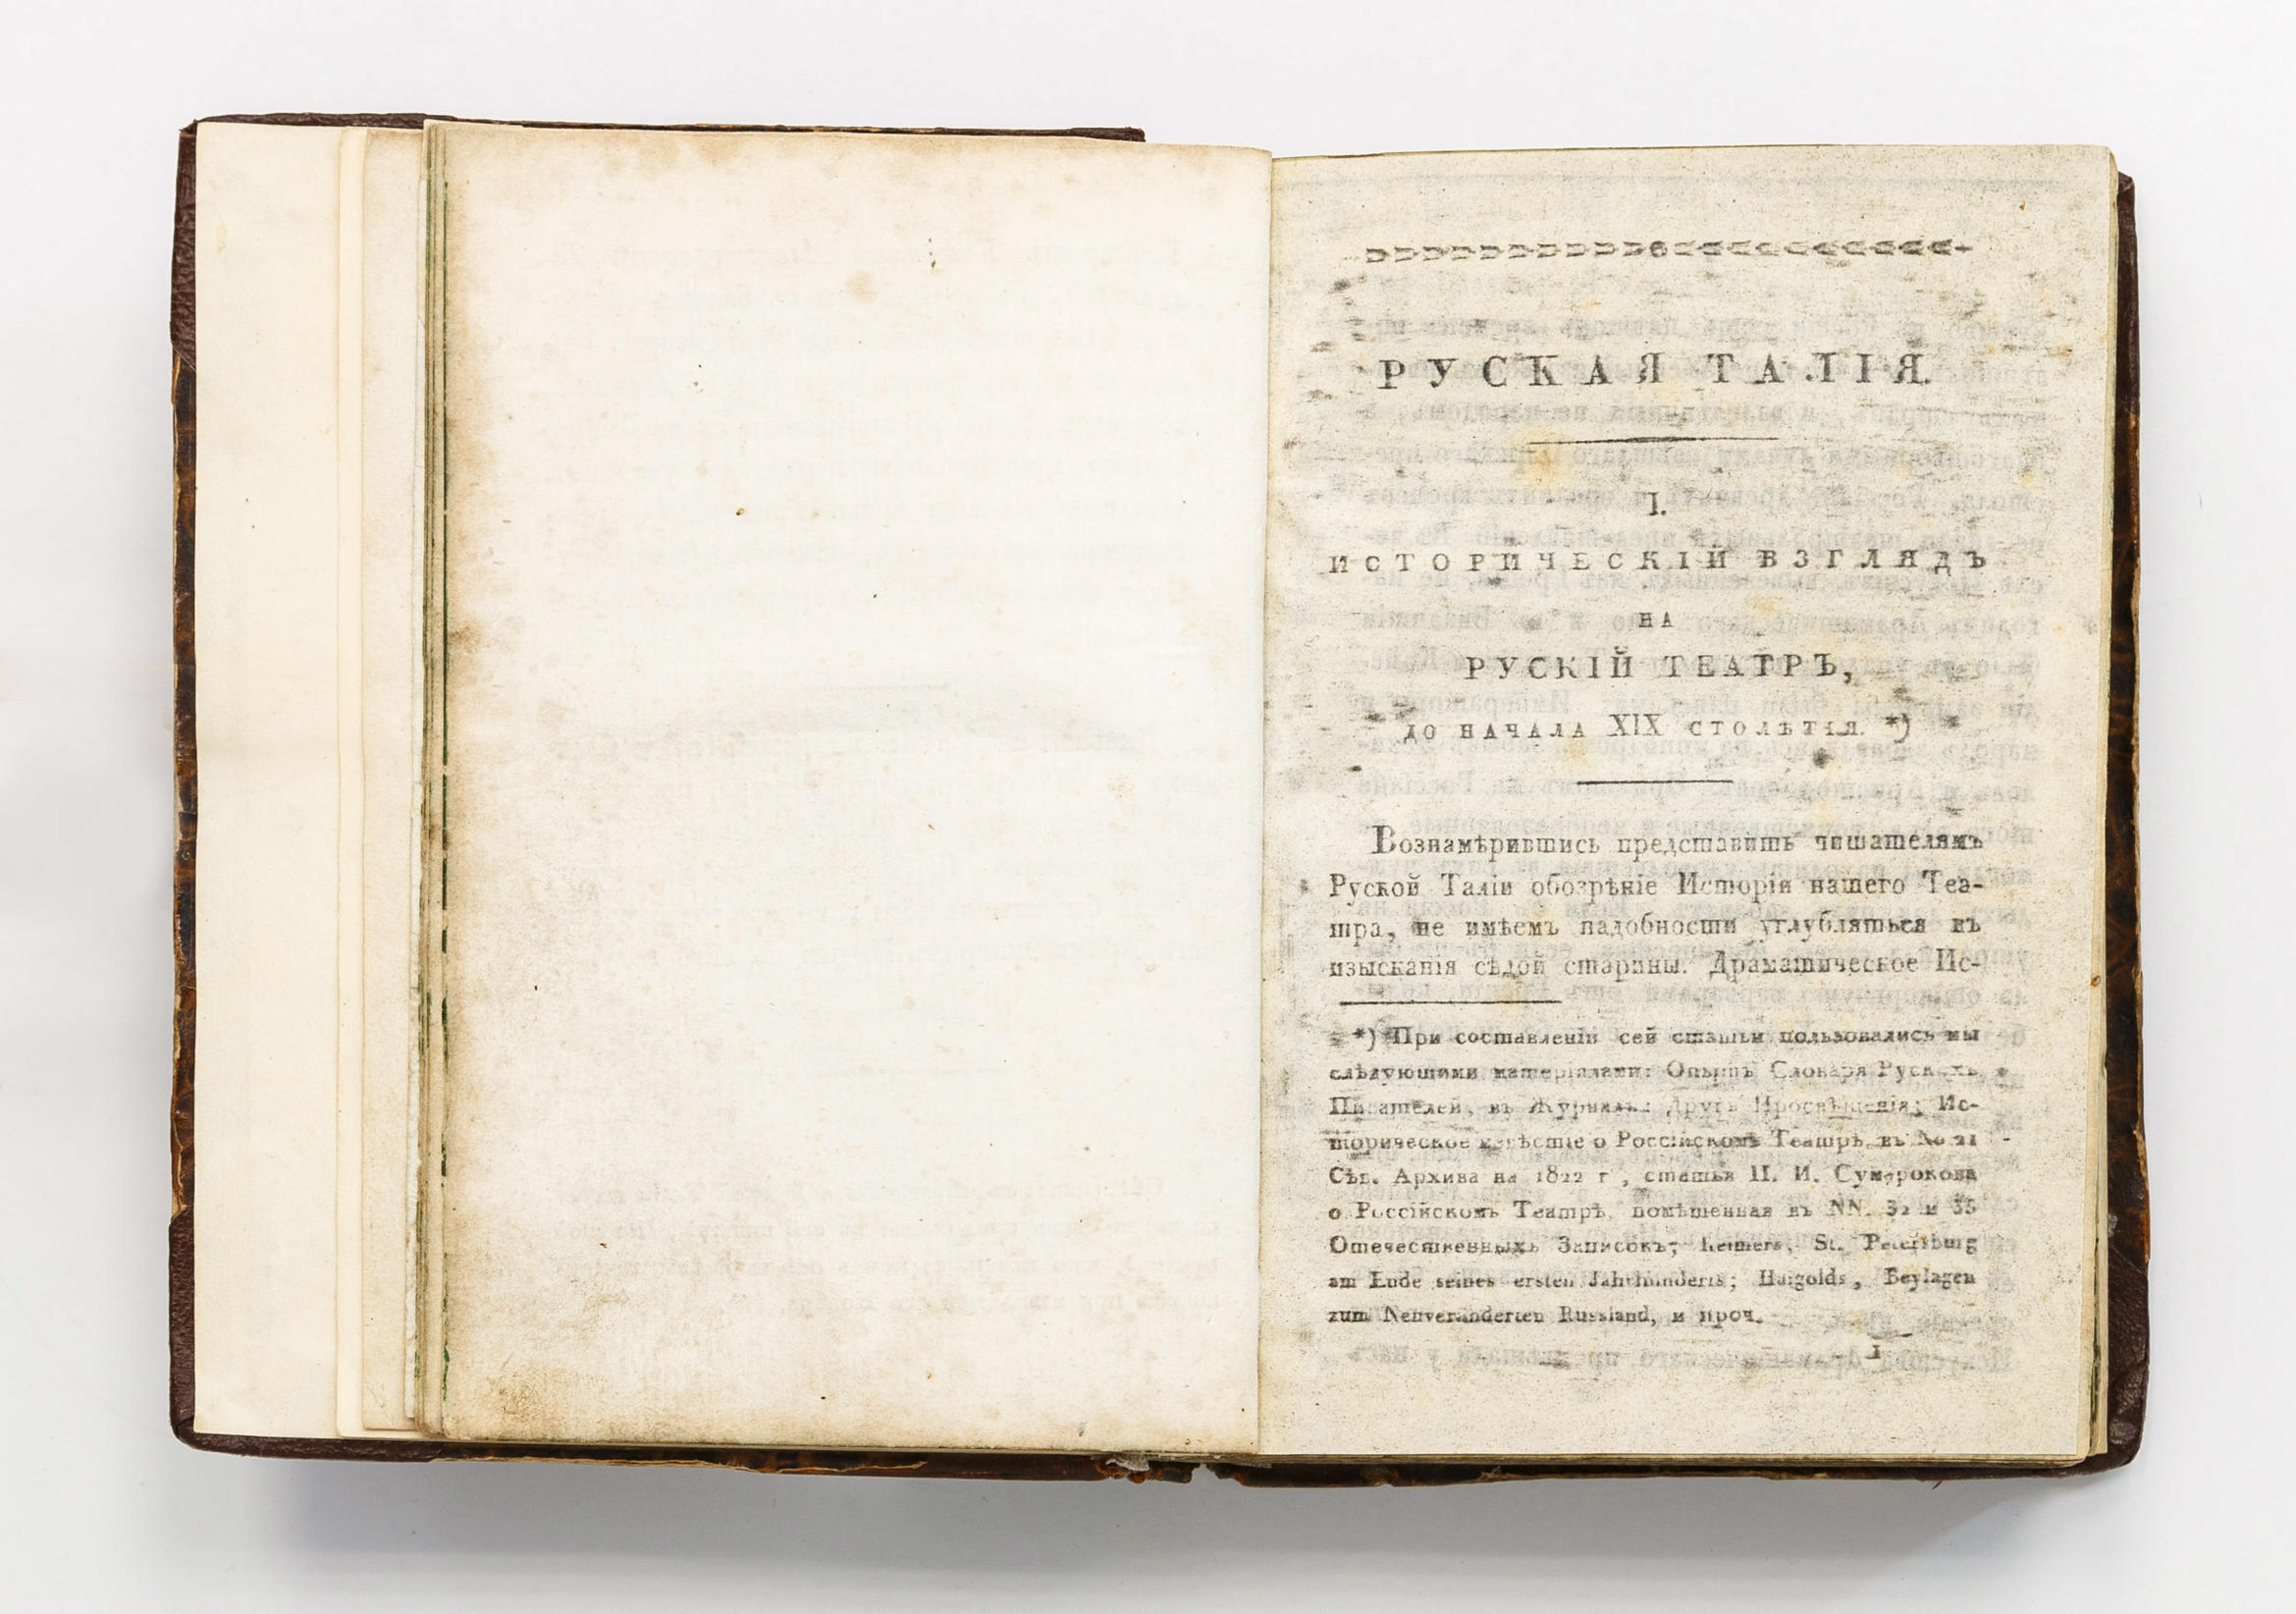 РУСКАЯ ТАЛІЯ.
I.
ИСТОРИЧЕСКІЙ ВЗГЛЯДЪ
НА
РУСКІЙ ТЕАТРЪ,
ДО НАЧАЛА XIX СТОЛѢТІЯ. *)
Вознамѣрившись представить читателямъ
Руской Таліи обозрѣніе Исторіи нашего Теа-
тра, не имѣемъ надобности углубляться въ
изысканія сѣдой старины. Драматическое Ис-
*) При составленіи сей статьи пользовались мы
слѣдующими матеріялами: Опытъ Словаря Рускихъ
Писателей, въ Журналѣ: Другъ Просвѣщенія; Ис-
торическое извѣстіе о Россійскомъ Театрѣ, въ No 21
Сѣв. Архива на 1822 г, статья П. И. Сумарокова
о Россійскомъ Театрѣ, помѣщенная въ NN. 32 и 35
Отечественныхъ Записокъ; Reimers, St. Petersburg
am Ende seines ersten Jahrhunderts; Haigolds, Beylagen
zum Neuveränderten Russland, и проч.
1